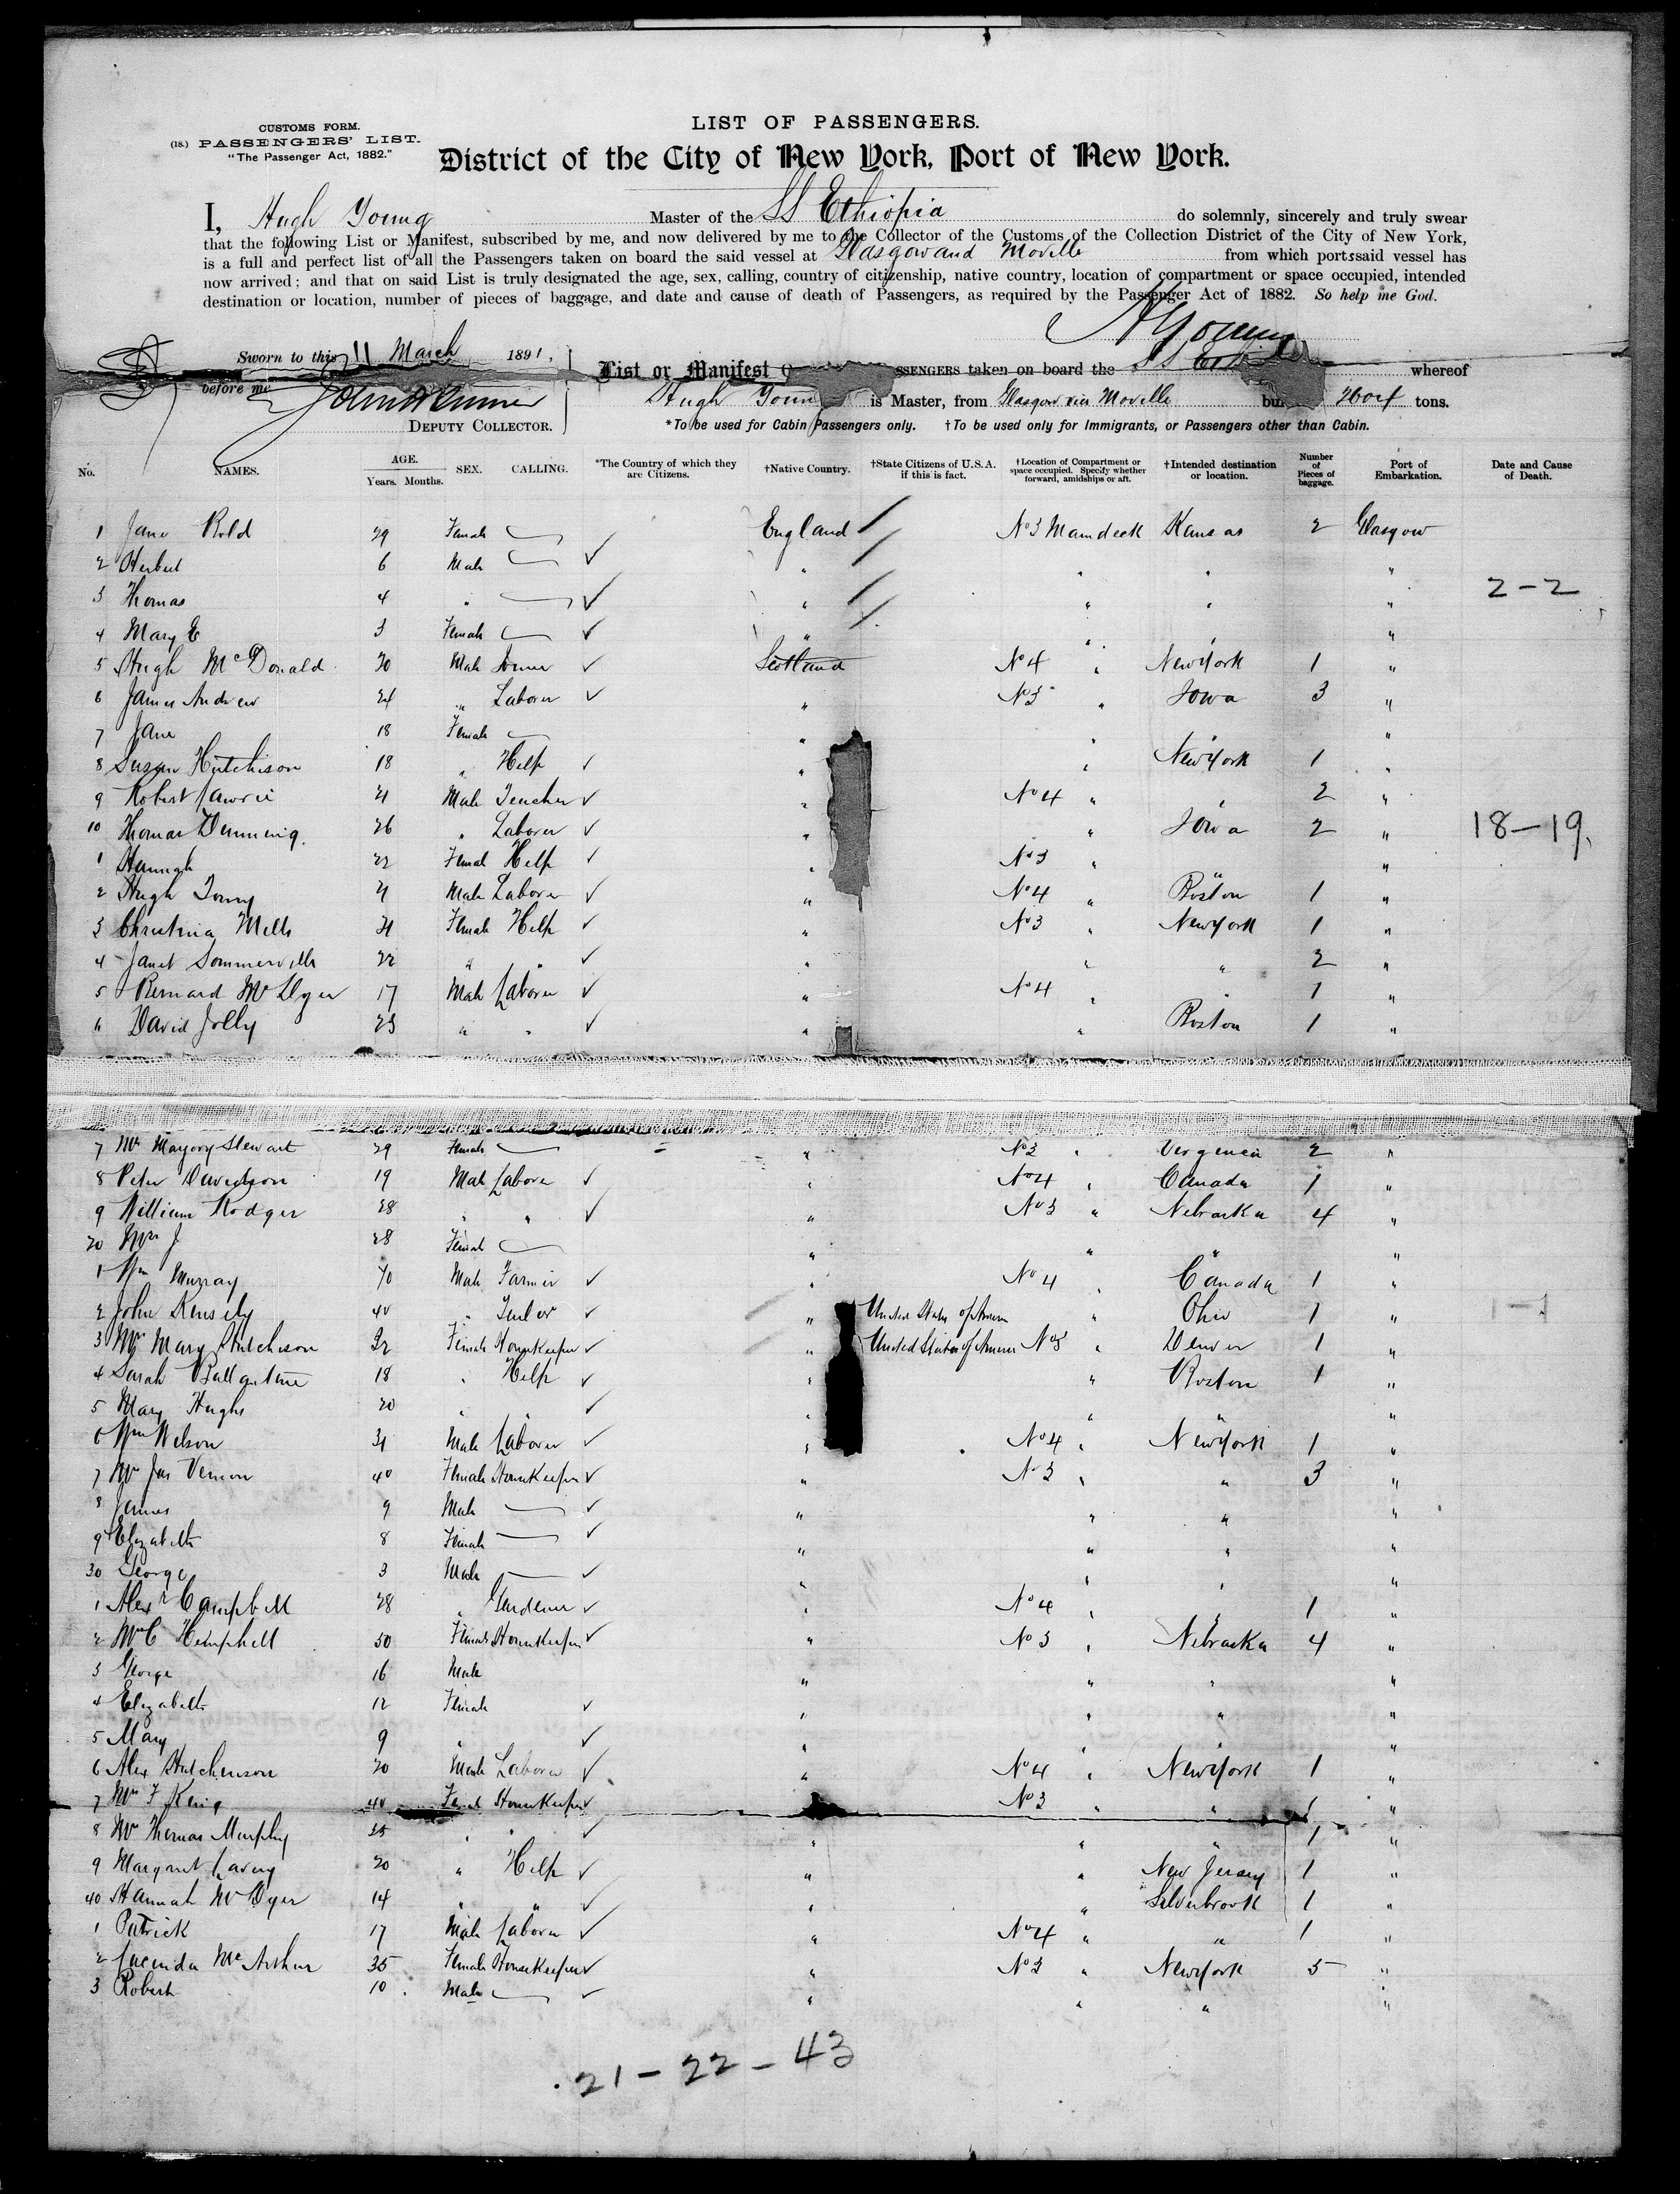 CUSTOMS FORM.
(18.) PASSENGERS' LIST.
"The Passenger Act, 1882."
LIST OF PASSENGERS.
District of the City of New York, Port of New York.
I, Hugh Young Master of the SS Ethiopia do solemnly, sincerely and truly swear
that the following List or Manifest, subscribed by me, and now delivered by me to the Collector of the Customs of the Collection District of the City of New York,
is a full and perfect list of all the Passengers taken on board the said vessel at Glasgow and Moville from which ports said vessel has
now arrived; and that on said List is truly designated the age, sex, calling, country of citizenship, native country, location of compartment or space occupied, intended
destination or location, number of pieces of baggage, and date and cause of death of Passengers, as required by the Passenger Act of 1882. So help me God.
H Young
Sworn to this 11 March 1891,
before me
DEPUTY COLLECTOR.
List or Manifest SSENGERS taken on board the SS Eth whereof
Hugh Youn is Master, from Glasgow via Moville bu tons.
*To be used for Cabin Passengers only. †To be used only for Immigrants, or Passengers other than Cabin.
No. NAMES. AGE. Years. Months. SEX. CALLING. *The Country of which they are Citizens. †Native Country. †State Citizens of U.S.A. if this is fact. †Location of Compartment or space occupied. Specify whether forward, amidships or aft. †Intended destination or location. Number of Pieces of baggage. Port of Embarkation. Date and Cause of Death.
1 Jane 29 Female England No 3 Maindeck Kansas 2 Glasgow
2 Herbert 6 Male " " " "
3 Thomas 4 " " " " " 2-2
4 Mary E 3 Female " " " "
5 Hugh McDonald 30 Male Joiner Scotland No 4 " New York 1 "
6 James Andrew 24 " Laborer " No 3 " Iowa 3 "
7 Jane 18 Female " " " "
8 Susan Hutchison 18 " Help " " New York 1 "
9 Robert Lawrie 21 Male Teacher " No 4 " " 2 "
10 Thomas Dunning 26 " Laborer " " Iowa 2 " 18-19
1 Hannah 22 Femal Help " No 3 " " "
2 Hugh 21 Male Laborer " No 4 " Boston 1 "
3 Christina Mills 21 Female Help " No 3 " New York 1 "
4 Janet Sommerville 22 " " " " " 2 "
5 Bernard McDyer 17 Male Laborer " No 4 " " 1 "
6 David Jolly 23 " " " " Boston 1 "
7 Mrs Marjory Stewart 29 Female " No 3 " Virginia 2 "
8 Peter Davidson 19 Male Laborer " No 4 " Canada 1 "
9 William Rodger 28 " " " No 3 " Nebraska 4 "
20 Mrs J 28 Female " " " "
1 Wm Murray 40 Male Farmer " No 4 " Canada 1 "
2 John 40 " " United States of America " Ohio 1 " 1-1
3 Mrs Mary Hutchison 32 Female Housekeeper " United States of America No 3 " Denver 1 "
4 Sarah Ballantine 18 " Help " " Boston 1 "
5 Mary Hughs 20 " " " " " "
6 Wm Wilson 31 Male Laborer " No 4 " New York 1 "
7 Mrs Jas Vernon 40 Female Housekeeper " No 3 " " 3 "
8 James 9 Male " " " "
9 Elizabeth 8 Female " " " "
30 George 3 Male " " " "
1 Alexr Campbell 28 " Gardener " No 4 " " 1 "
2 Mrs C Hemphill 50 Female Housekeeper " No 3 " Nebraska 4 "
3 George 16 Male " " " "
4 Elizabeth 12 Female " " " "
5 Mary 9 " " " " "
6 Alex Hutchinson 20 Male Laborer " No 4 " New York 1 "
7 Mrs F King 40 Femal Housekeeper " No 3 " " 1 "
8 Mrs Thomas Murphy 35 " " " " " 1 "
9 Margaret Lavery 20 " Help " " New Jersey 1 "
40 Hannah McDyer 14 " " " " Silverbrook 1 "
1 Patrick 17 Male Laborer " No 4 " " 1 "
2 Lucinda McArthur 35 Female Housekeeper " No 3 " New York 5 "
3 Robert 10 Male " " " "
21-22-43